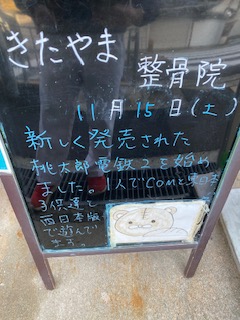 きたやま
整骨院
11月15日(土)
新しく発売された
桃太郎電鉄2を始め
ました。1人でCOMと東日本
子供達と
西日本版
で遊んで
ます。